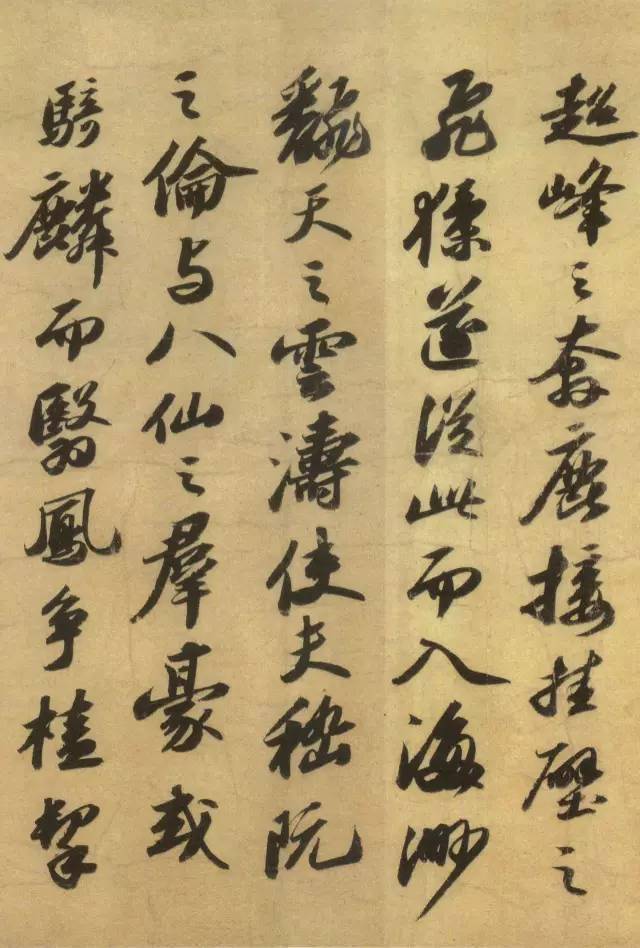 超峰之奔鹿接挂壁之
飛猱遂從此而入海渺
飜天之雲濤使夫嵇阮
之倫与八仙之羣豪或
騎麟而翳鳳争榼挈